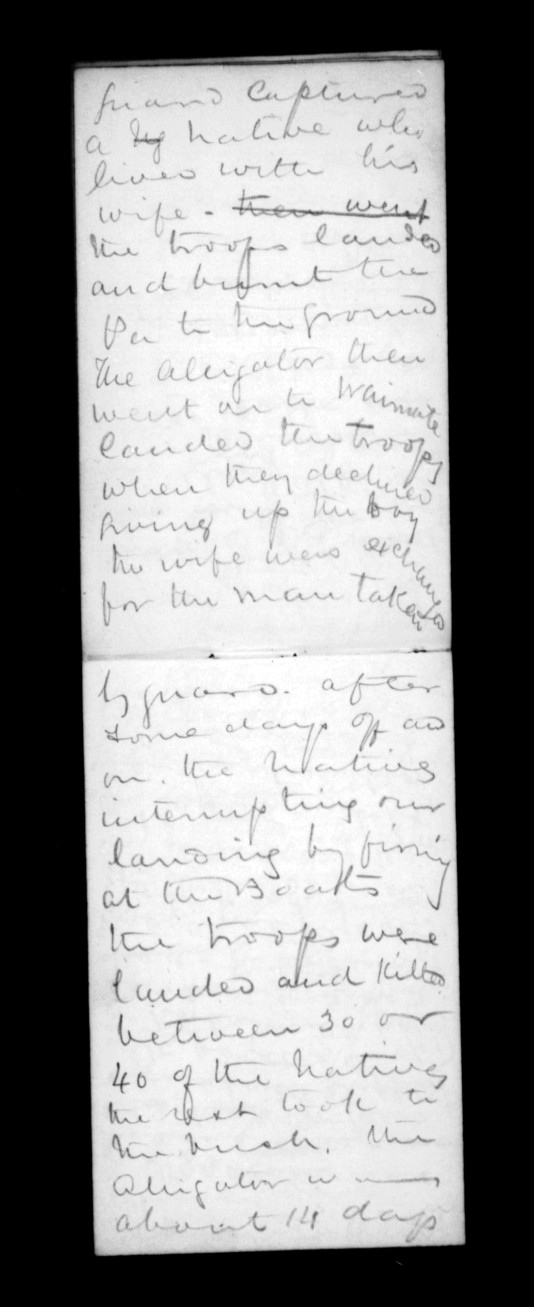 Guard captured
a ~~by~~ native who
lived with his
wife - ~~then went~~
the troops landed
and burnt the
Pa to the ground
The Aligator then
went on to Waimate
landed the troops
when they declined
giving up the boy
the wife was exchanged
for the man taken
by guard. after
some days off and
on. the natives
interrupting our
landing by firing
at the Boats
the troops were
landed and killed
between 30 or
40 of the natives
the rest took to
the bush. The
Aligator
about 14 days